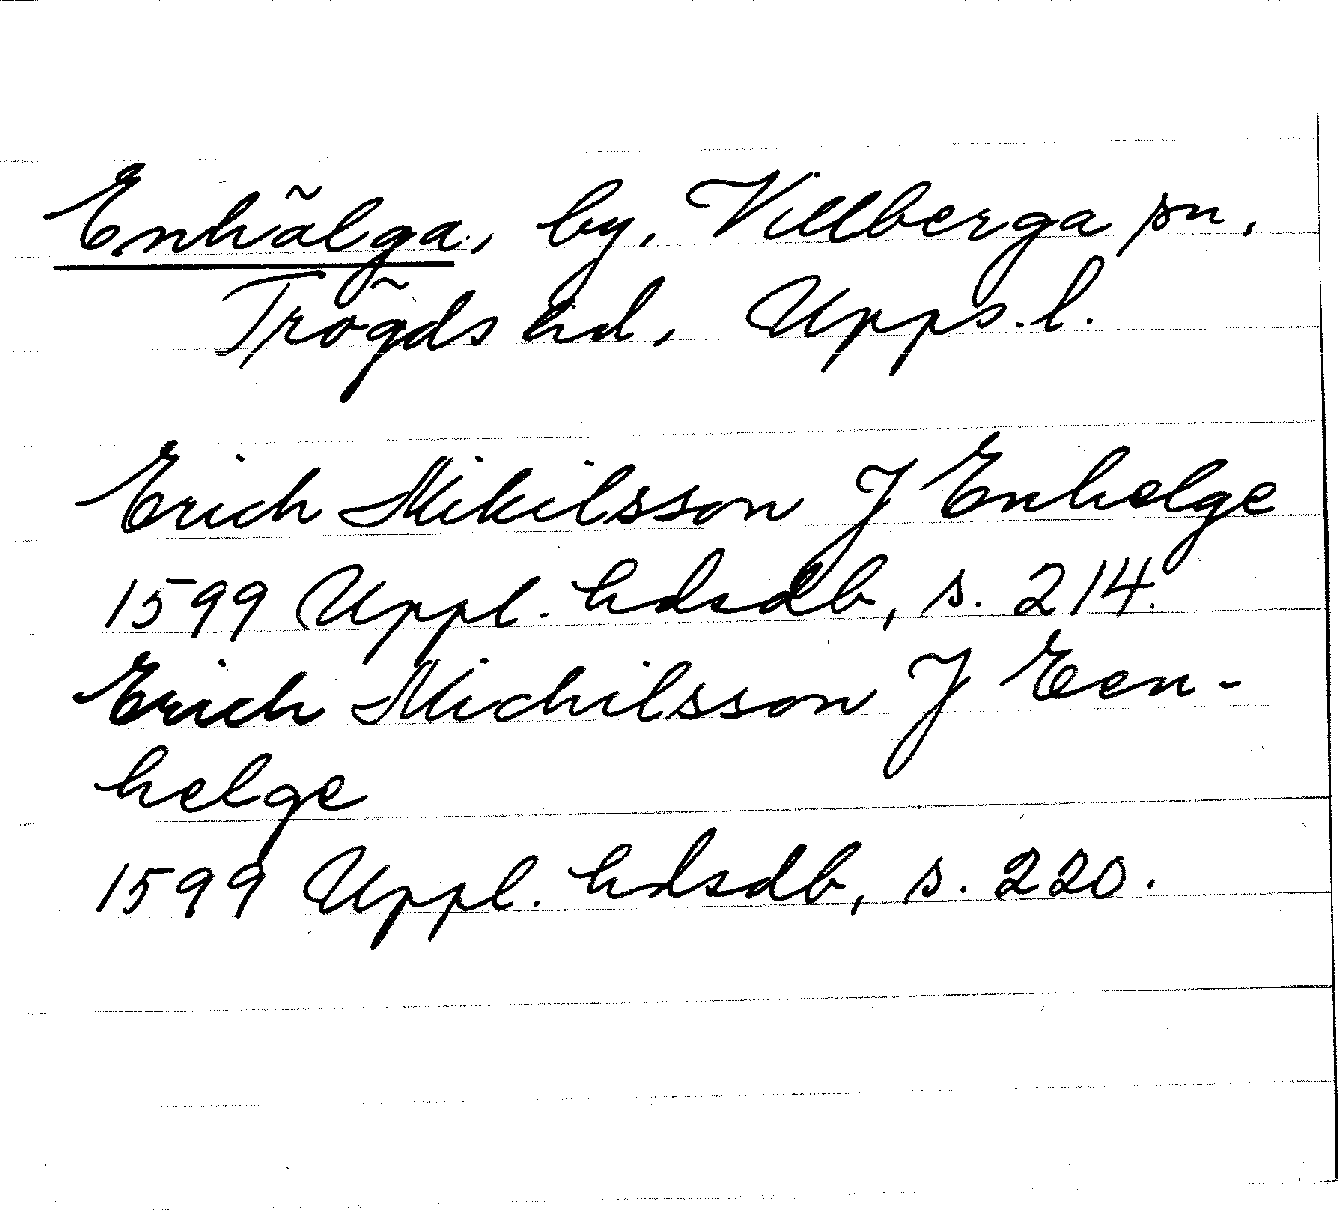 Enhälga, by, Villberga sn,
Trögds hd, Upps. l.
Erich Mikilsson J Enhelge
1599 Uppl. hdsdb, s. 214.
Erich Michilsson J Een-
helge
1599 Uppl. hdsdb, s. 220.